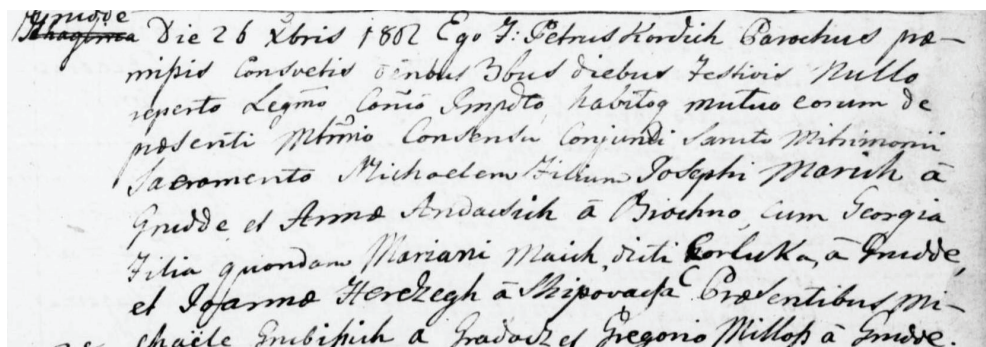 Grudde
Die 26 Xbris 1802 Ego F: Petrus Kordich Parochus præ-
missis consvetis dēnbus 3bus diebus Festivis Nullo
reperto Legmō Canīo Impdto, habitoq mutuo eorum de
præsenti Mtrīnio Consensu Conjunxi Sancto Mtrimonii
Sacramento Michaelem Filium Josephi Marich à
Grudde et Annæ Andacsich à Biochno, cum Georgia
Filia quondam Mariani Maich, dicti Corluka, à Grudde,
et Joannæ Herczegh à Shipovacsa Præsentibus Mi-
chaële Grubissich à Gradacz et Gregorio Milloss à Grudde.